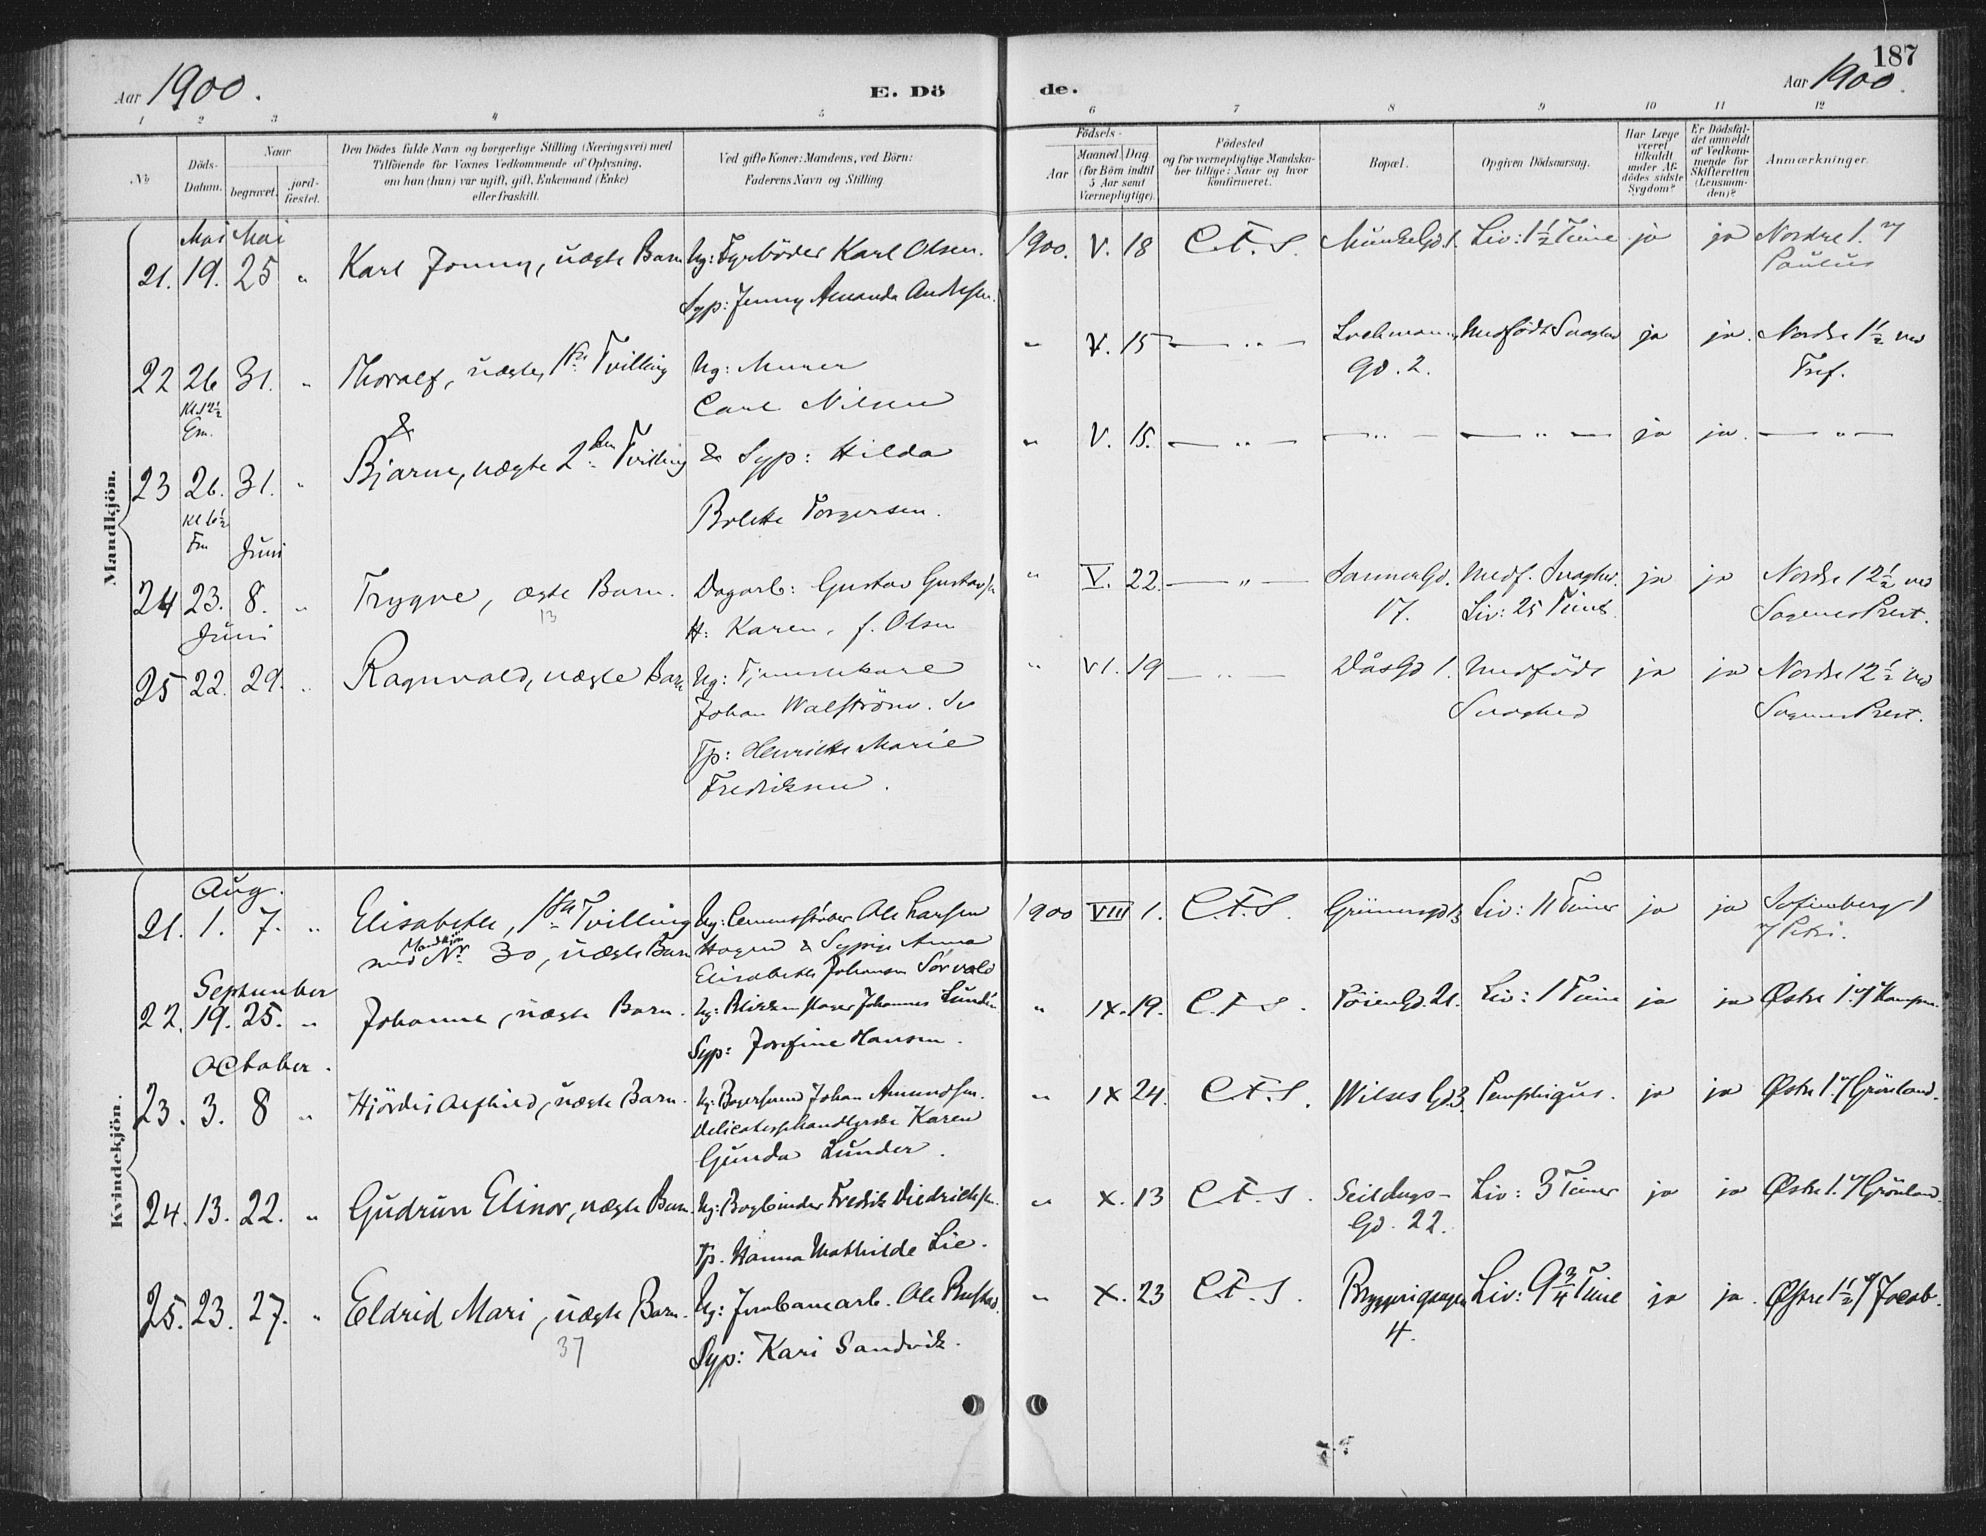 187
Aar 1900.
E. Dö
de.
Aar 1900.
1 2 3 4 5 6 7 8 9 10 11 12
No
Döds-
Datum.
Naar
begravet.
jord-
fæstet.
Den Dödes fulde Navn og borgerlige Stilling (Næringsvei) med
Tilföiende for Voxnes Vedkommende af Oplysning,
om han (hun) var ugift, gift, Enkemand (Enke)
eller fraskilt.
Ved gifte Koner: Mandens, ved Börn:
Faderens Navn og Stilling
Födsels-
Aar
Maaned
Dag
(for Börn indtil
5 Aar samt
Værnepligtige)
Födested
og for værnepligtige Mandska-
ber tillige: Naar og hvor
konfirmeret.
Bopæl.
Opgiven Dödsaarsag.
Har Læge
været
tilkaldt
under Af-
dödes sidste
Sygdom?
Er Dödsfal-
det anmeldt
af Vedkom-
mende for
Skifteretten
(Lensman-
den)?
Anmærkninger.
Mandkjön.
Mai Mai
21. 19. 25 " Karl Jonny, uægte Barn Ug: Fyrböder Karl Olsen. 1900. V. 18 C.F.S. MunkeGd. 1. Liv: 1 1/2 Time ja ja Nordre 1. v/
Paulus
Syp: Jenny Amanda Andresen.
22 26 31. " Thoralf, uægte, 1ste Tvilling Ug: Murer " V. 15 — " — Gd. 2. Medfødt Svaghed ja ja. Nordre 1 1/2 ved
Kl. 12 1/2
Em.
Carl Nilsen
&
23 26. 31. " Bjarne, uægte 2den Tvilling & Syp: Hilda " V. 15. — " — — " — — " — ja ja. — " —
Kl 10 1/2
Fm
Bolette Torgersen.
Juni
24 23. 8. " Trygve, ægte Barn. Dagarb: Gustav Gustavsen " V. 22. — " — SannerGd. Medf. Svaghed. ja ja Nordre 12 1/2 ved
13
H: Karen, f. Olsen 17. Liv: 25 Timer SognesPrest.
Juni
25 22. 29. " Ragnvald, uægte Barn Ug: Tjenestekarl " VI. 19 — " — DåsGd 1. Medfödt ja ja Nordre 12 1/2 ved
Johan Walström. Svaghed SognesPrest.
Tp: Henriette Marie
Fredriksen.
Kvindekjön.
Aug.
21. 1. 7. " Elisabeth, 1ste Tvilling Ug: Cementstöber Ole Larsen 1900 VIII 1. C.F.S. Grünersgd 13 Liv: 11 Timer ja ja Sofienberg 1
v/ Petri.
med Mandkjön No 30, uægte Barn Hagen & Sypige Anna
Elisabeth Johansen Sörvald
September
22. 19. 25. " Johanne, uægte Barn. Ug: Blikkenslager Johannes Lundin " IX. 19. C.F.S. TöienGd. 21. Liv: 1 Time ja ja Østre 1. v/ Kampen.
Syp: Josefine Hansen.
October.
23. 3. 8 " Hjördis Alfhild, uægte Barn. Ug: Bagersvend Johan Amundsen. " IX 24. C.F.S. Wilses Gd. 3. Pemphigus. ja ja Østre 1. v/ Grönland.
Delicatessehandlerske Karen
Gunda Lunder.
24. 13. 22. " Gudrun Elinor, uægte Barn. Ug: Bogbinder Fredrik Diedrichsen. " X. 13 C.F.S. Seildugs- Liv: 3 Timer ja ja Østre 1. v/ Grönland.
Gd. 22.
Tp. Hanna Mathilde Lie.
25. 23. 27. " Eldrid Mari, uægte Barn. Ug: Jernbanearb. Ole Bustad. " X. 23 C.F.S. Bryggerigangen Liv: 9 3/4 Time ja ja. Østre 1 1/2 v/ Jacob.
4.
37
Syp: Kari Sandvik.